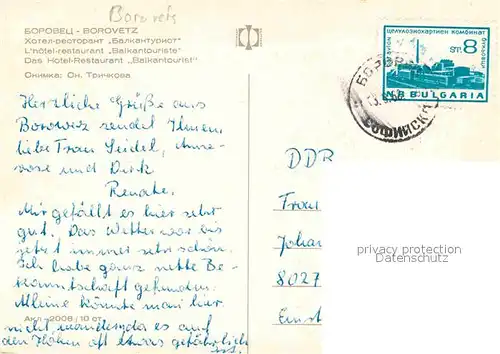 Borovetz
БОРОВЕЦ - BOROVETZ
Хотел-ресторант „Балкантурист"
L'hôtel-restaurant „Balkantouriste"
Das Hotel-Restaurant „Balkantourist"
Снимка: Сн. Тричкова
Herzliche Grüße aus
Borowez sendet Ihnen,
liebe Frau Seidel, Anne-
rose und Dirk
Renate.
Mir gefällt es hier sehr
gut. Das Wetter war bis
jetzt immer sehr schön.
Ich habe ganz nette Be-
kanntschaft gefunden.
Alleine könnte man hier
Акл-2008/10 ст.
nicht wandern, da es auf
den Höhen oft etwas gefährlich
ist.
целулознохартиен комбинат
ст. 8
НР BULGARIA
БОРОВ
СОФИЙСК
DDR
Frau
Johan
8027
Ernst
privacy protection
Datenschutz